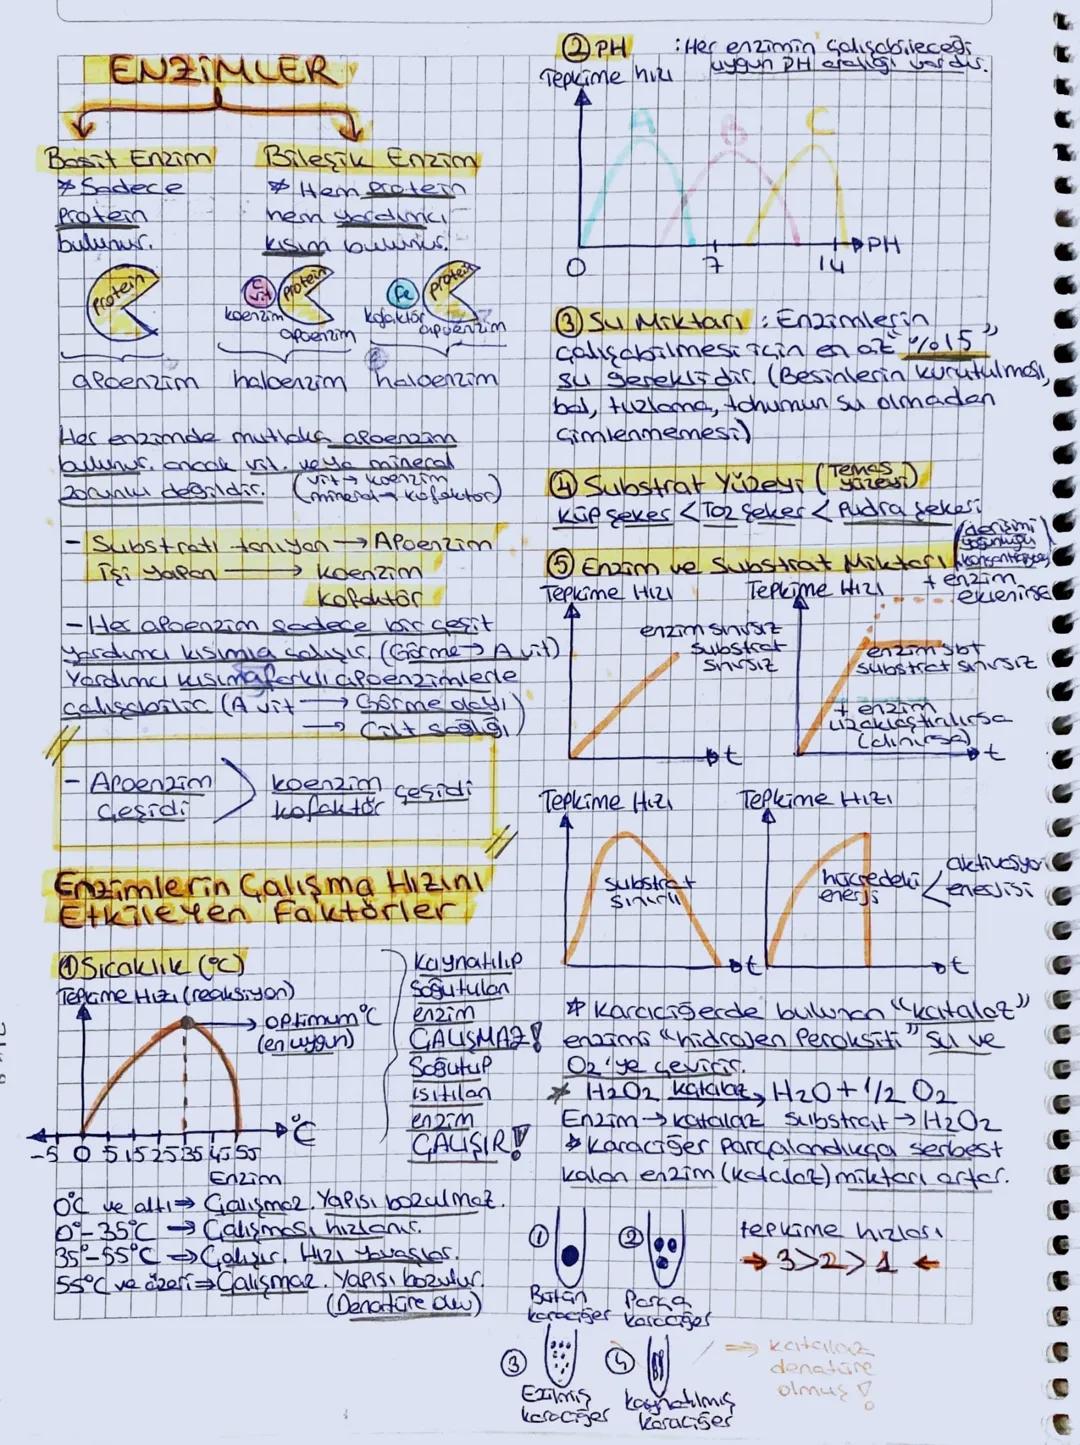 ENZİMLER
Basit Enzim
* Sadece
Protein
bulunur.
Protein
apoenzim
Bileşik Enzim
* Hem protein
hem yardımcı
kısım bulunur.
C vit
protein
koenzim
apoenzim
haloenzim
Fe
protein
kofaktör
apoenzim
haloenzim
Her enzimde mutlaka apoenzim
bulunur. ancak vit. veya mineral
zorunlu değildir. (vit → koenzim
mineral → kofaktör)
- Substratı tanıyan → Apoenzim
İşi yapan → koenzim
kofaktör
- Her apoenzim sadece bir çeşit
yardımcı kısımla çalışır. (Görme → A vit)
Yardımcı kısım farklı apoenzimlerle
çalışabilir (A vit → Görme olayı
→ Cilt sağlığı)
- Apoenzim çeşidi > koenzim kofaktör çeşidi
Enzimlerin Çalışma Hızını
Etkileyen Faktörler
① Sıcaklık (°C)
Tepkime Hızı (reaksiyon)
optimum °C
(en uygun)
°C
-5 0 5 15 25 35 45 55
Kaynatılıp
Soğutulan
enzim
ÇALIŞMAZ!
Soğutup
ısıtılan
enzim
ÇALIŞIR!
Enzim
0°C ve altı ⇒ Çalışmaz. Yapısı bozulmaz.
0°-35°C → Çalışması hızlanır.
35°-55°C ⇒ Çalışır. Hızı yavaşlar.
55°C ve üzeri ⇒ Çalışmaz. Yapısı bozulur.
(Denatüre olur)
② PH : Her enzimin çalışabileceği
uygun PH aralığı vardır.
Tepkime hızı
A B C
0 7 14 PH
③ Su Miktarı : Enzimlerin
çalışabilmesi için en az "%15"
su gereklidir. (Besinlerin kurutulması,
bal, tuzlama, tohumun su olmadan
çimlenmemesi)
④ Substrat Yüzeyi (Temas yüzeyi)
Küp şeker < Toz şeker < Pudra şekeri
⑤ Enzim ve Substrat Miktarı (derişimi
yoğunluğu
konsantrasyonu)
Tepkime Hızı
enzim sınırsız
substrat
sınırsız
t
Tepkime Hızı
+ enzim
eklenirse
enzim sbt
substrat sınırsız
+ enzim
uzaklaştırılırsa
(alınırsa)
t
Tepkime Hızı
substrat
sınırlı
t
Tepkime Hızı
hücredeki
enerji
aktivasyon
enerjisi
t
* Karaciğerde bulunan "katalaz"
enzimi "hidrojen Peroksiti" su ve
O2'ye çevirir.
* H2O2 katalaz → H2O + 1/2 O2
Enzim → katalaz Substrat → H2O2
* Karaciğer parçalandıkça serbest
kalan enzim (katalaz) miktarı artar.
①
Bütün
karaciğer
②
Parça
karaciğer
tepkime hızları
→ 3>2>1 ←
③
Ezilmiş
karaciğer
④
kaynatılmış
karaciğer
⇒ katalaz
denatüre
olmuş!